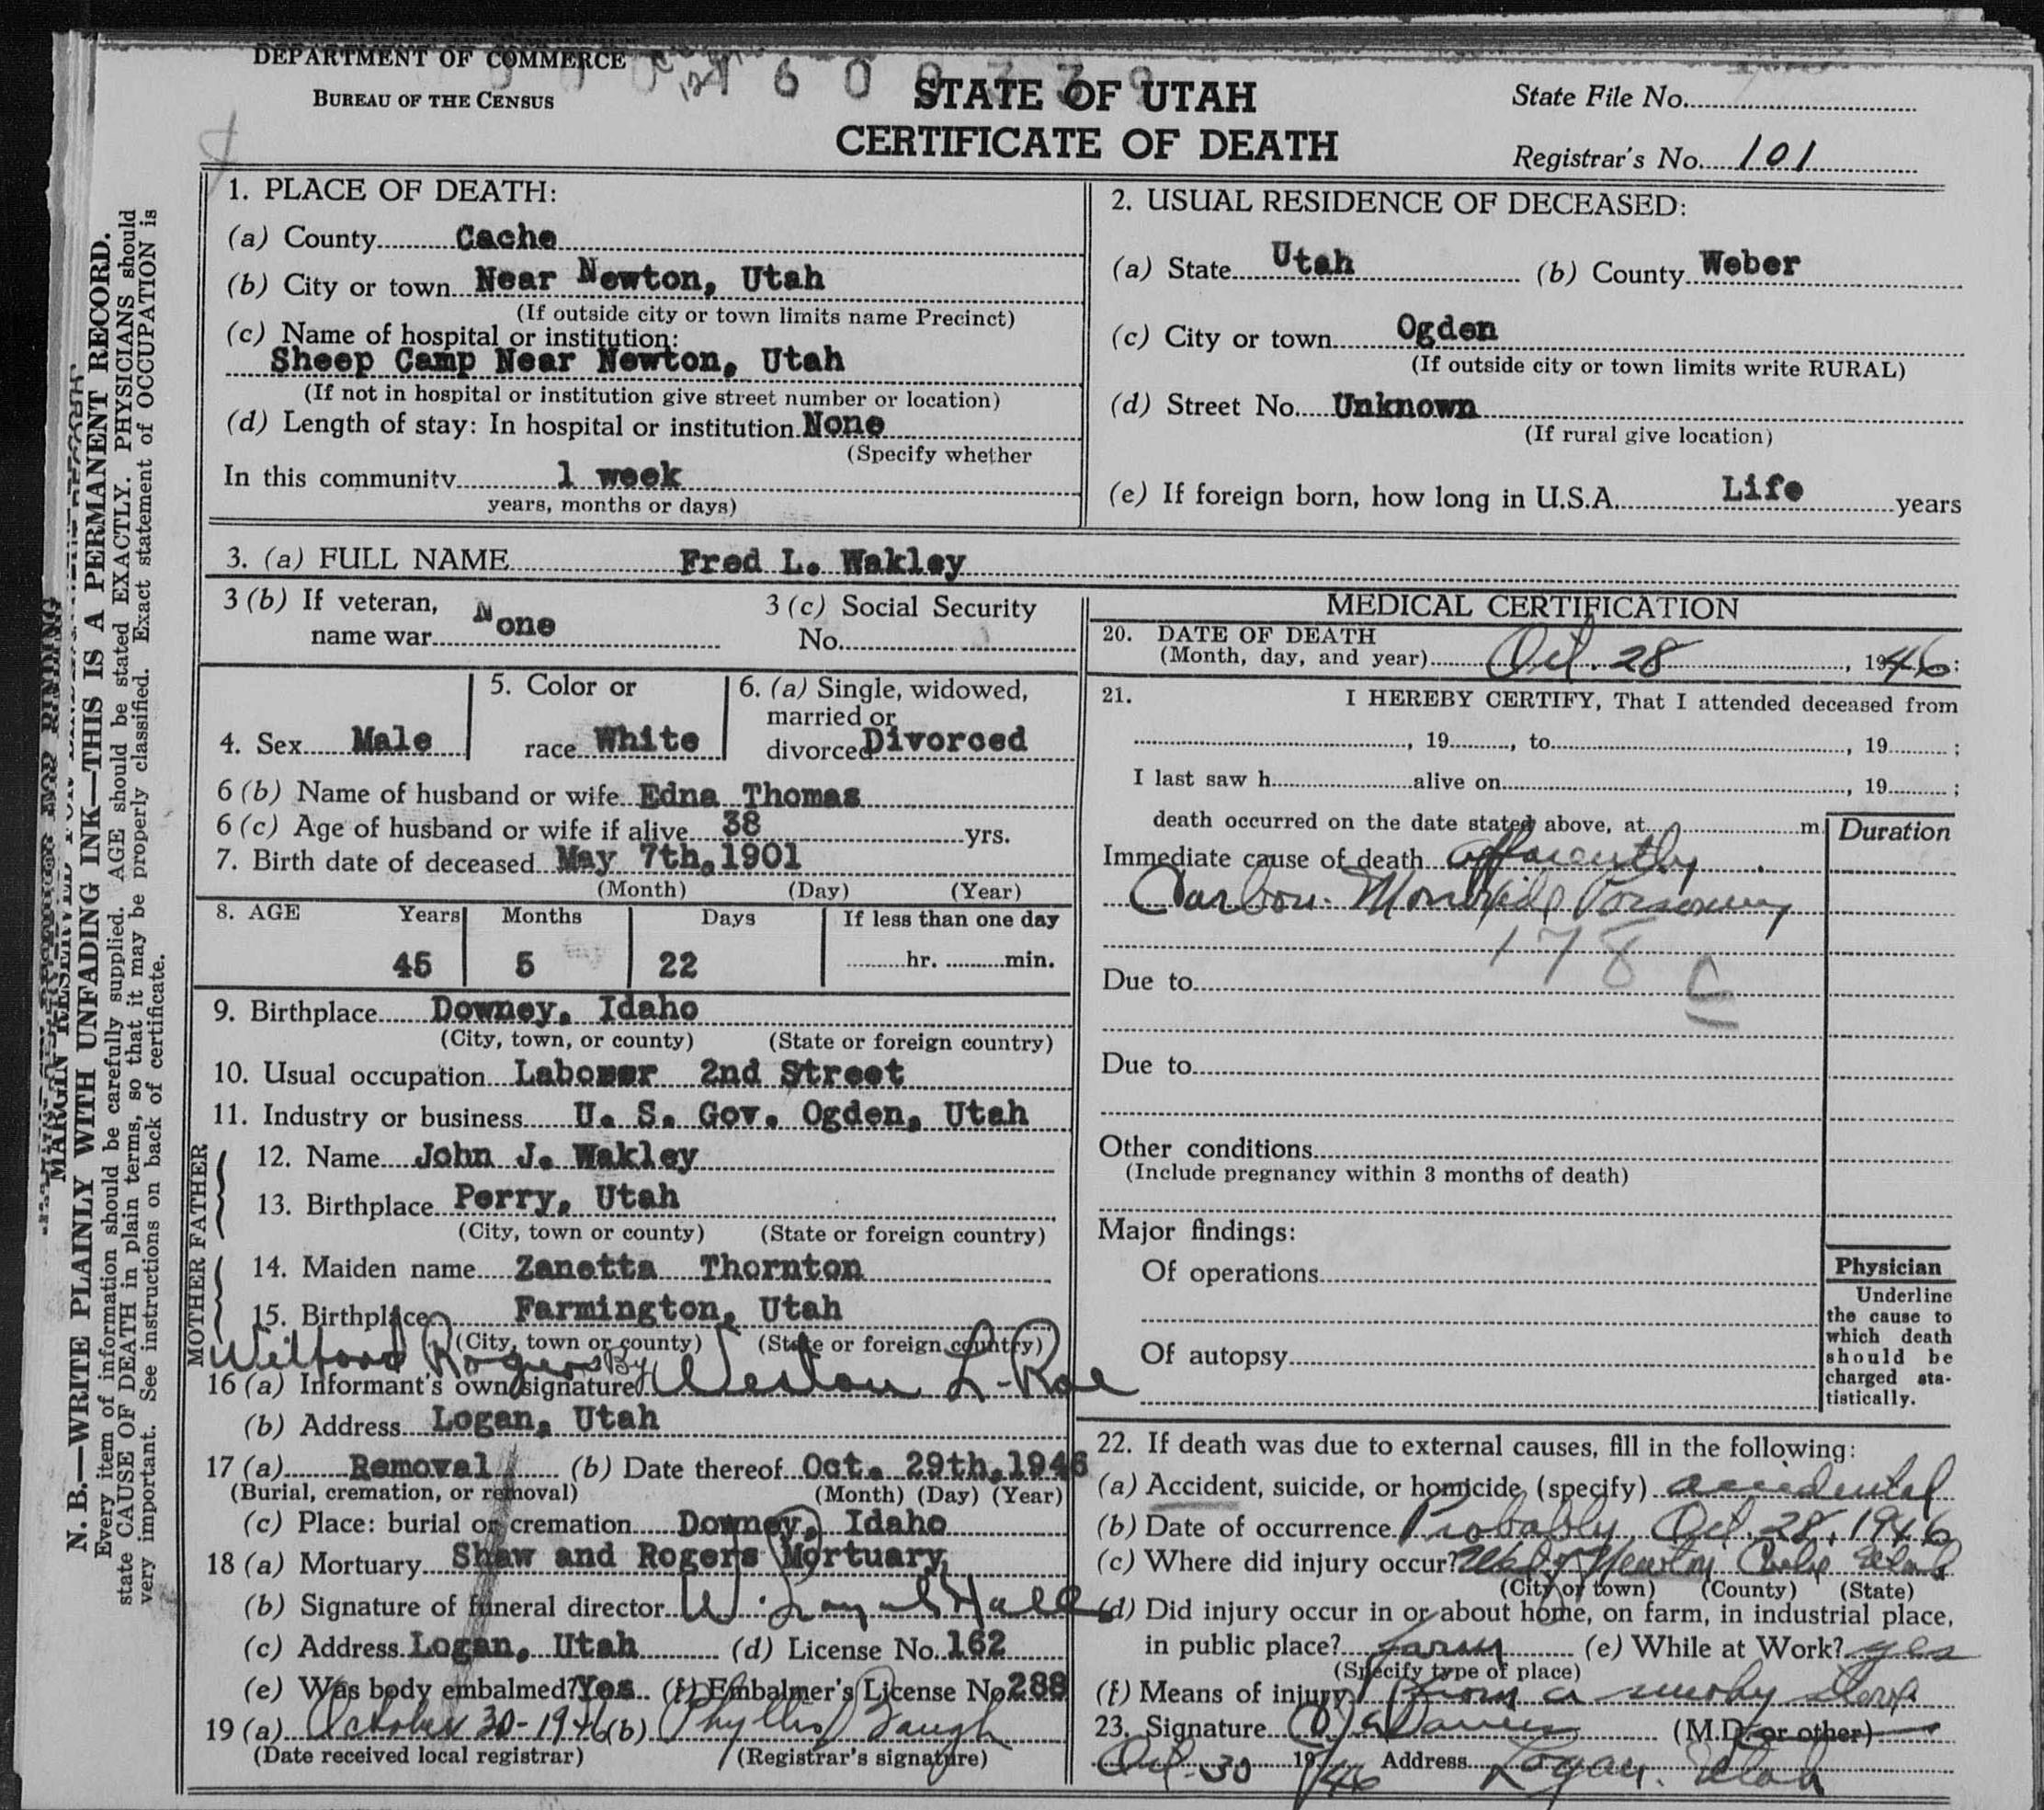 DEPARTMENT OF COMMERCE
BUREAU OF THE CENSUS
STATE OF UTAH
CERTIFICATE OF DEATH
State File No.
Registrar's No. 101
N. B.—WRITE PLAINLY WITH UNFADING INK—THIS IS A PERMANENT RECORD.
Every item of information should be carefully supplied. AGE should be stated EXACTLY. PHYSICIANS should
state CAUSE OF DEATH in plain terms, so that it may be properly classified. Exact statement of OCCUPATION is
very important. See instructions on back of certificate.
1. PLACE OF DEATH:
(a) County Cache
(b) City or town Near Newton, Utah
(If outside city or town limits name Precinct)
(c) Name of hospital or institution:
Sheep Camp Near Newton, Utah
(If not in hospital or institution give street number or location)
(d) Length of stay: In hospital or institution None
(Specify whether
In this community 1 week
years, months or days)
2. USUAL RESIDENCE OF DECEASED:
(a) State Utah (b) County Weber
(c) City or town Ogden
(If outside city or town limits write RURAL)
(d) Street No. Unknown
(If rural give location)
(e) If foreign born, how long in U.S.A. Life years
3. (a) FULL NAME Fred L. Wakley
3 (b) If veteran, name war None
3 (c) Social Security No.
4. Sex Male
5. Color or race White
6. (a) Single, widowed, married or divorced Divorced
6 (b) Name of husband or wife Edna Thomas
6 (c) Age of husband or wife if alive 38 yrs.
7. Birth date of deceased May 7th, 1901
(Month) (Day) (Year)
8. AGE Years Months Days If less than one day
45 5 22 hr. min.
9. Birthplace Downey, Idaho
(City, town, or county) (State or foreign country)
10. Usual occupation Laborer 2nd Street
11. Industry or business U. S. Gov. Ogden, Utah
FATHER
12. Name John J. Wakley
13. Birthplace Perry, Utah
(City, town or county) (State or foreign country)
MOTHER
14. Maiden name Zanetta Thornton
15. Birthplace Farmington, Utah
(City, town or county) (State or foreign country)
Wilford Rogers By
16 (a) Informant's own signature Weston L. Roe
(b) Address Logan, Utah
17 (a) Removal (b) Date thereof Oct. 29th, 1946
(Burial, cremation, or removal) (Month) (Day) (Year)
(c) Place: burial or cremation Downey, Idaho
18 (a) Mortuary Shaw and Rogers Mortuary
(b) Signature of funeral director W. Loyal Hall
(c) Address Logan, Utah (d) License No. 162
(e) Was body embalmed? Yes (f) Embalmer's License No. 288
19 (a) October 30-1946 (b) Phyllis Baugh
(Date received local registrar) (Registrar's signature)
MEDICAL CERTIFICATION
20. DATE OF DEATH
(Month, day, and year) Oct. 28, 1946:
21. I HEREBY CERTIFY, That I attended deceased from
, 19 , to , 19 ;
I last saw h alive on , 19 ;
death occurred on the date stated above, at m
Duration
Immediate cause of death apparently
Carbon Monoxide Poisoning
178 c
Due to
Due to
Other conditions
(Include pregnancy within 3 months of death)
Major findings:
Of operations
Of autopsy
Physician
Underline
the cause to
which death
should be
charged sta-
tistically.
22. If death was due to external causes, fill in the following:
(a) Accident, suicide, or homicide (specify) accidental
(b) Date of occurrence Probably Oct. 28, 1946
(c) Where did injury occur? West of Newton Cache Utah
(City or town) (County) (State)
(d) Did injury occur in or about home, on farm, in industrial place,
in public place? farm (e) While at Work? yes
(Specify type of place)
(f) Means of injury from a smoky stove
23. Signature (M.D. or other)
Oct. 30 1946 Address Logan. Utah